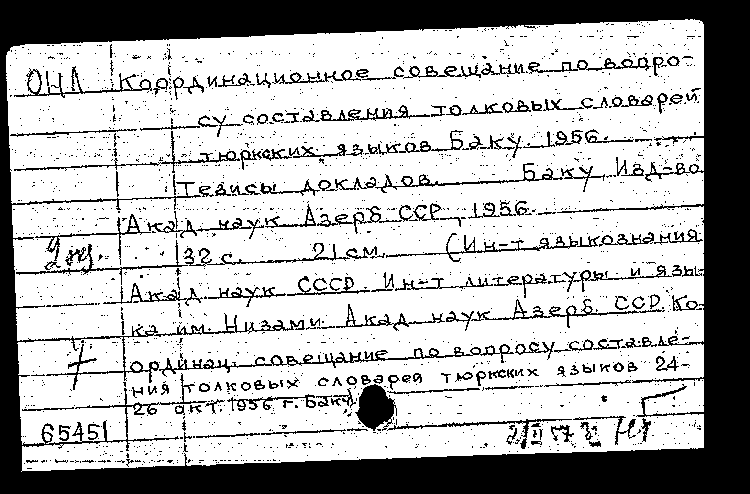 ОНЛ Координационное совещание по вопро-
су составления толковых словарей
тюркских языков. Баку. 1956.
Тезисы докладов. Баку, Изд-во
Акад. наук Азерб. ССР, 1956.
2 экз. 32 с. 21 см. (Ин-т языкознания
Акад. наук СССР. Ин-т литературы и язы-
ка им. Низами Акад. наук Азерб. ССР. Ко-
ординац. совещание по вопросу составле-
ния толковых словарей тюркских языков 24-
26 окт. 1956 г. Баку)
65451